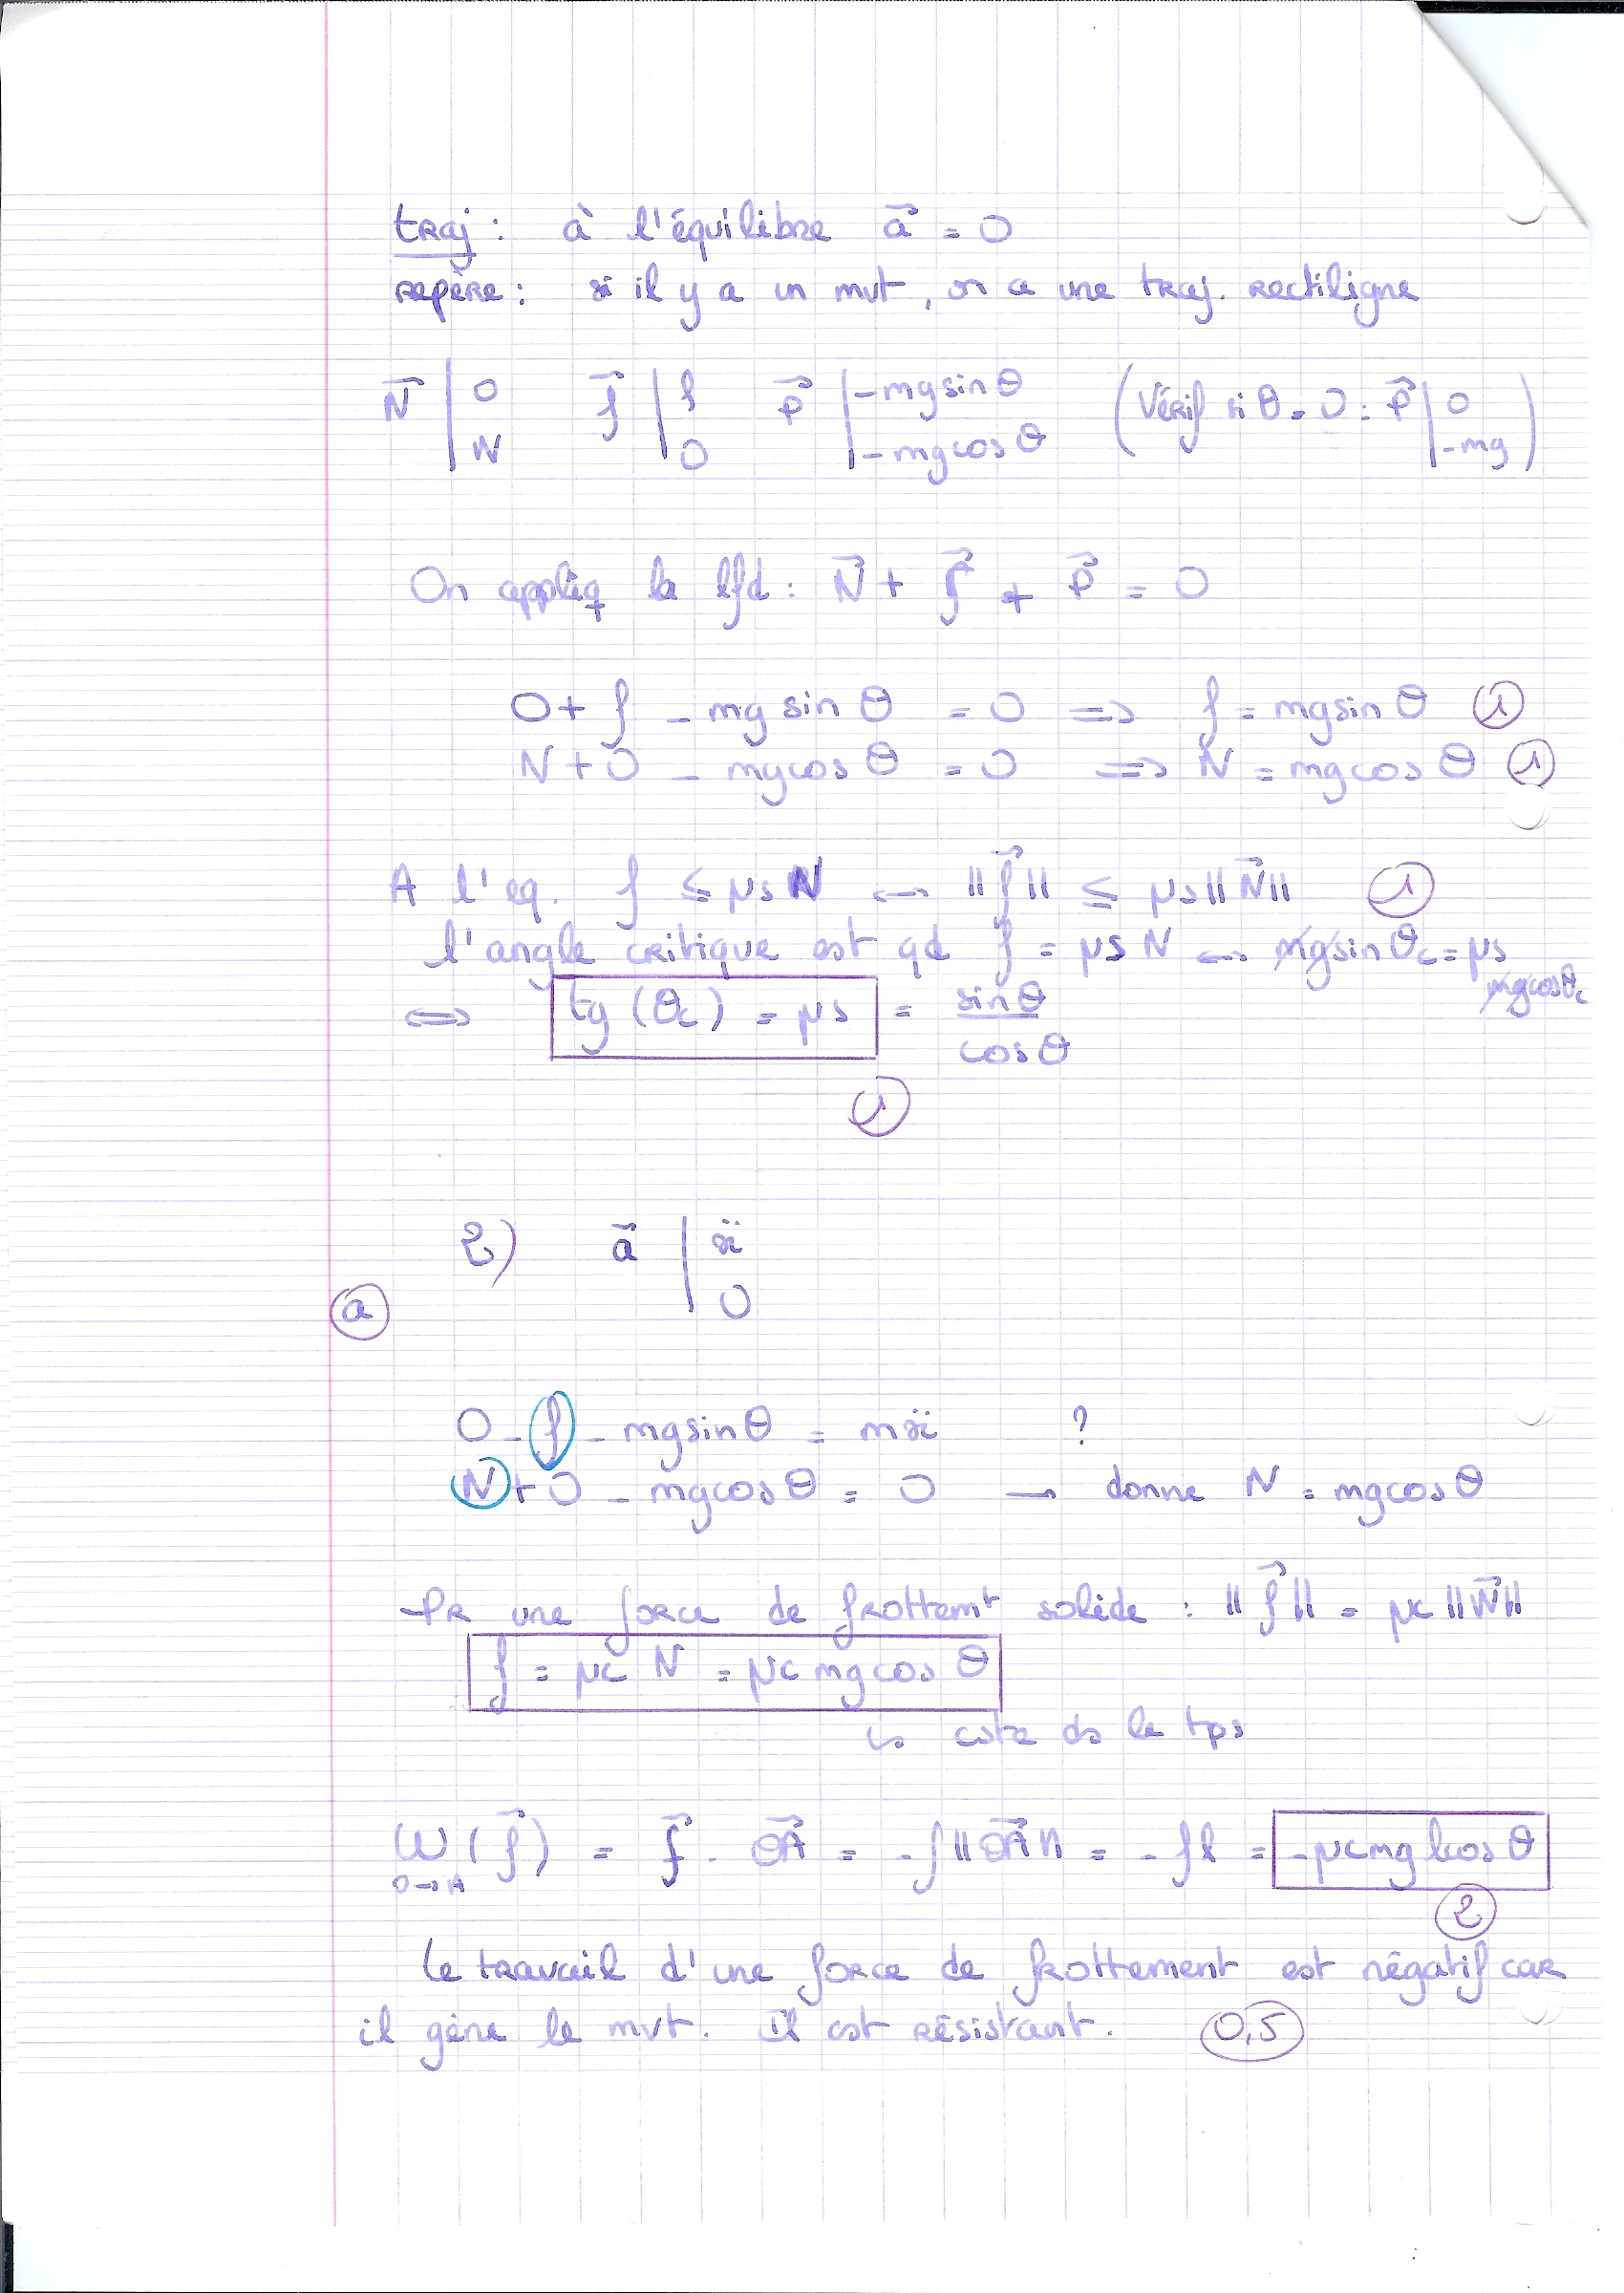 traj : à l'équilibre a⃗ = 0
repère : si il y a un mvt, on a une traj. rectiligne
N⃗ | 0 f⃗ | f P⃗ | -mg sin θ (Vérif si θ = 0 : P⃗ | 0
| N | 0 | -mg cos θ | -mg)
On appliq la lfd : N⃗ + f⃗ + P⃗ = 0
0 + f - mg sin θ = 0 => f = mg sin θ (1)
N + 0 - mg cos θ = 0 => N = mg cos θ (1)
A l'eq. f ≤ μs N ↔ ||f⃗|| ≤ μs ||N⃗|| (1)
l'angle critique est qd f = μs N ↔ mg sin θc = μs
mg cos θc
⇔ tg (θc) = μs = sin θ / cos θ
(1)
2) a⃗ | ẍ
| 0
(a)
0 - f - mg sin θ = mẍ ?
N + 0 - mg cos θ = 0 → donne N = mg cos θ
Pr une force de frottemt solide : ||f⃗|| = μc ||N⃗||
f = μc N = μc mg cos θ
↳ cste ds le tps
W (f⃗) = f⃗ . OA⃗ = -f ||OA⃗|| = -fl = -μc mg l cos θ
O→A
(2)
Le travail d'une force de frottement est négatif car
il gène le mvt. Il est résistant. (0,5)